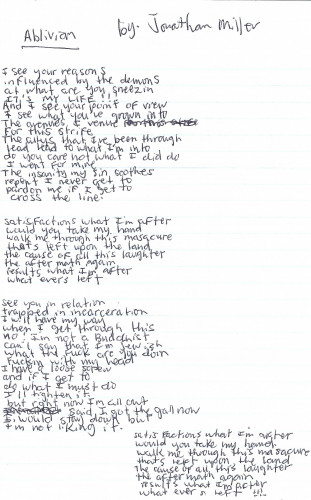 Ablivion
by: Jonathan Miller
I see your reasons
influenced by the demons
at what are you sneezin
IT'S MY LIFE!!
And I see your point of view
I see what you've grown into
The avenues I venue
For this strife
The alleys that I've been through
lead lead to what I'm into
do you care not what I did do
I went for mine
The insanity my sin soothes
repent I never get to
pardon me if I get to
cross the line.
satisfactions what I'm after
would you take my hand
walk me through this masacure
that's left upon the land
the cause of all this laughter
the after math again
results what I'm after
what evers left
see you in relation
trapped in incarceration
I will have my way
when I get through this
no! I'm not a Buddhist
can't say that I'm Jewish
what thy fuck are you doin
Fuckin with my head
I have a loose screw
and if I get to
do what I must do
I'll tighten it
but right now I'm all out
said I got the gall now
I would slow down but
I'm not liking it.
satisfactions what I'm after
would you take my hand
walk me through this masacure
that's left upon the land
the cause of all this laughter
the after math again
results what I'm after
what evers left !!